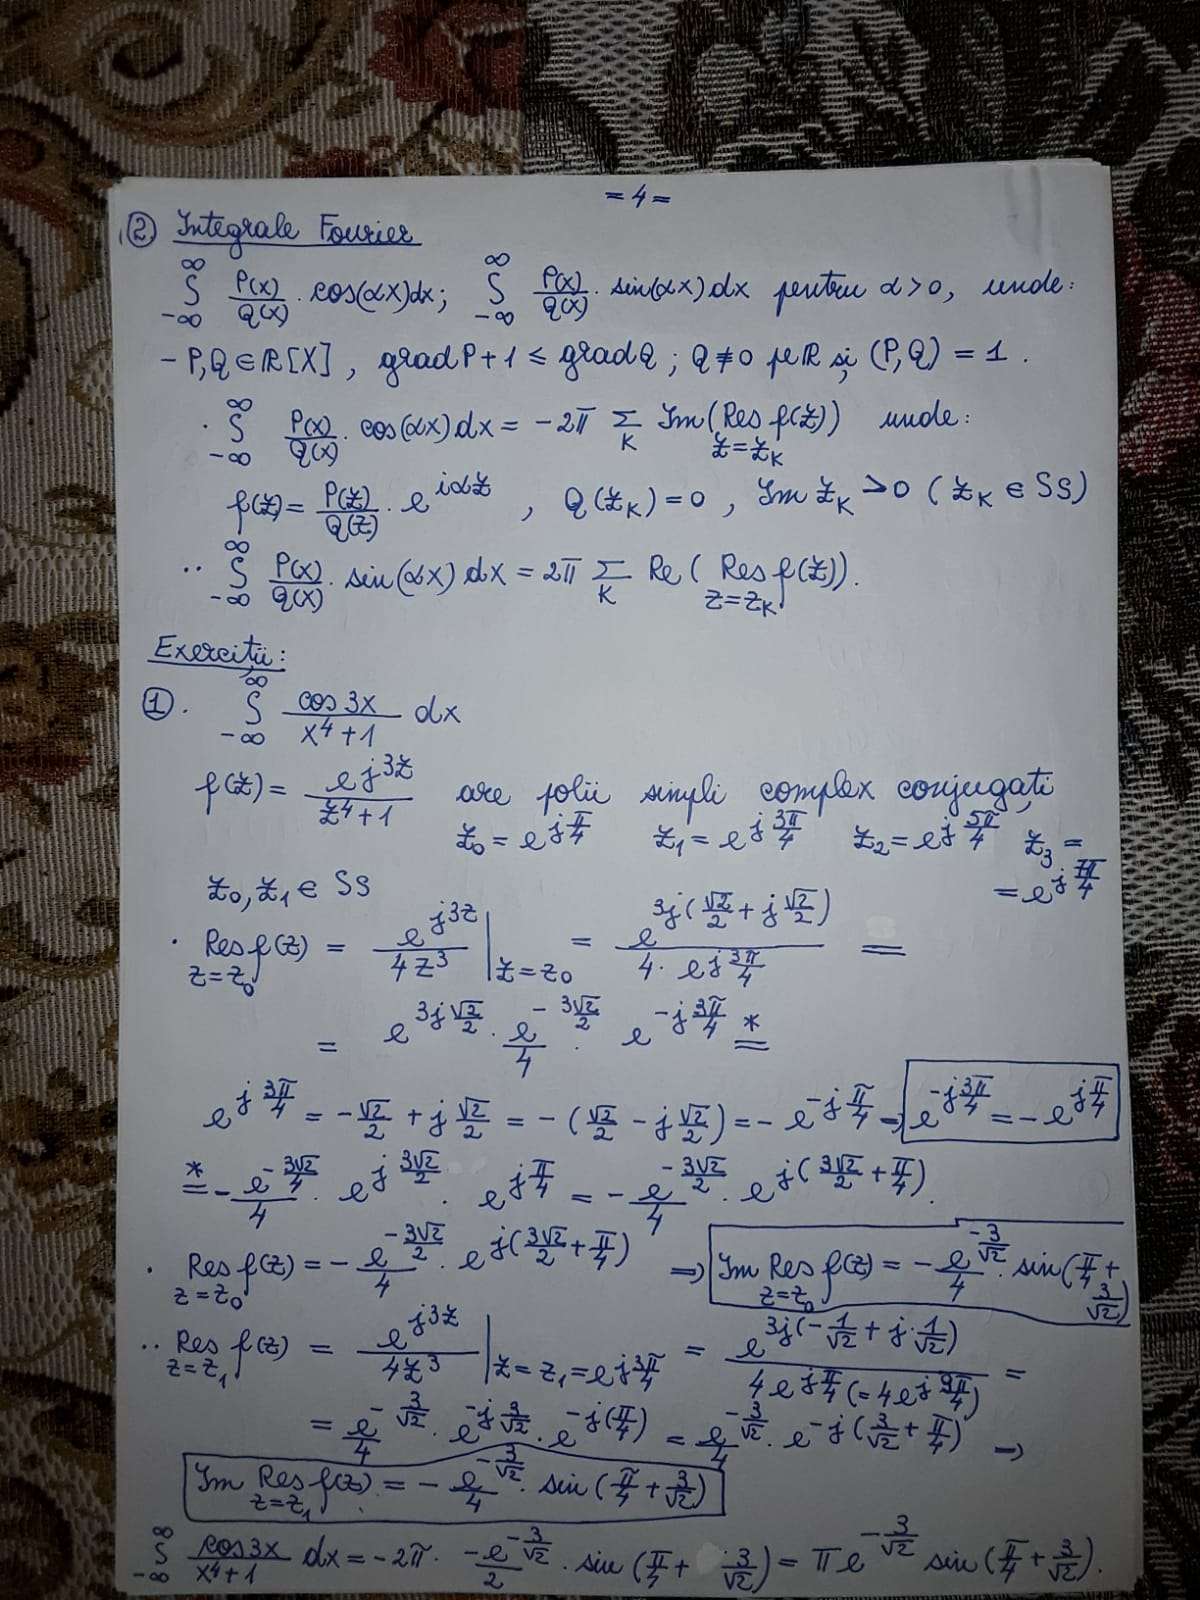 = 4 =
② Integrale Fourier
∫_{-∞}^{∞} P(x)/Q(x) · cos(αx)dx; ∫_{-∞}^{∞} P(x)/Q(x) · sin(αx)dx pentru α>0, unde:
- P,Q ∈ ℝ[X], gradP+1 ≤ gradQ; Q≠0 pe ℝ și (P,Q) = 1.
· ∫_{-∞}^{∞} P(x)/Q(x) · cos(αx)dx = -2π Σ_K Im(Res_{z=z_K} f(z)) unde:
f(z) = P(z)/Q(z) · e^{iαz}, Q(z_K)=0, Im z_K >0 (z_K ∈ SS)
·· ∫_{-∞}^{∞} P(x)/Q(x) · sin(αx)dx = 2π Σ_K Re(Res_{z=z_K} f(z)).
Exerciții:
①. ∫_{-∞}^{∞} cos3x/(x^4+1) dx
f(z) = e^{j3z}/(z^4+1) are polii simpli complex conjugați
z_0 = e^{jπ/4} z_1 = e^{j3π/4} z_2 = e^{j5π/4} z_3 =
z_0, z_1 ∈ SS = e^{j7π/4}
· Res_{z=z_0} f(z) = e^{j3z}/(4z^3) |_{z=z_0} = e^{3j(√2/2 + j√2/2)}/(4·e^{j3π/4}) =
= e^{3j√2/2} · e^{-3√2/2}/4 · e^{-j3π/4} *=
e^{j3π/4} = -√2/2 + j√2/2 = -(√2/2 - j√2/2) = -e^{-jπ/4} ⇒ e^{-j3π/4} = -e^{jπ/4}
*= -e^{-3√2/4}/4 · e^{j3√2/2} · e^{jπ/4} = -e^{-3√2/2}/4 · e^{j(3√2/2 + π/4)}.
· Res_{z=z_0} f(z) = -e^{-3√2/2}/4 · e^{j(3√2/2 + π/4)} ⇒ Im Res_{z=z_0} f(z) = -e^{-3/√2}/4 · sin(π/4 + 3/√2)
·· Res_{z=z_1} f(z) = e^{j3z}/(4z^3) |_{z=z_1=e^{j3π/4}} = e^{3j(-1/√2 + j·1/√2)}/(4e^{jπ/4} (=4e^{j9π/4})) =
= e^{-3/√2}/4 · e^{-j3/√2} · e^{-j(π/4)} = e^{-3/√2}/4 · e^{-j(3/√2 + π/4)} ⇒
Im Res_{z=z_1} f(z) = -e^{-3/√2}/4 · sin(π/4 + 3/√2)
∫_{-∞}^{∞} cos3x/(x^4+1) dx = -2π · -e^{-3/√2}/2 · sin(π/4 + 3/√2) = πe^{-3/√2} sin(π/4 + 3/√2).